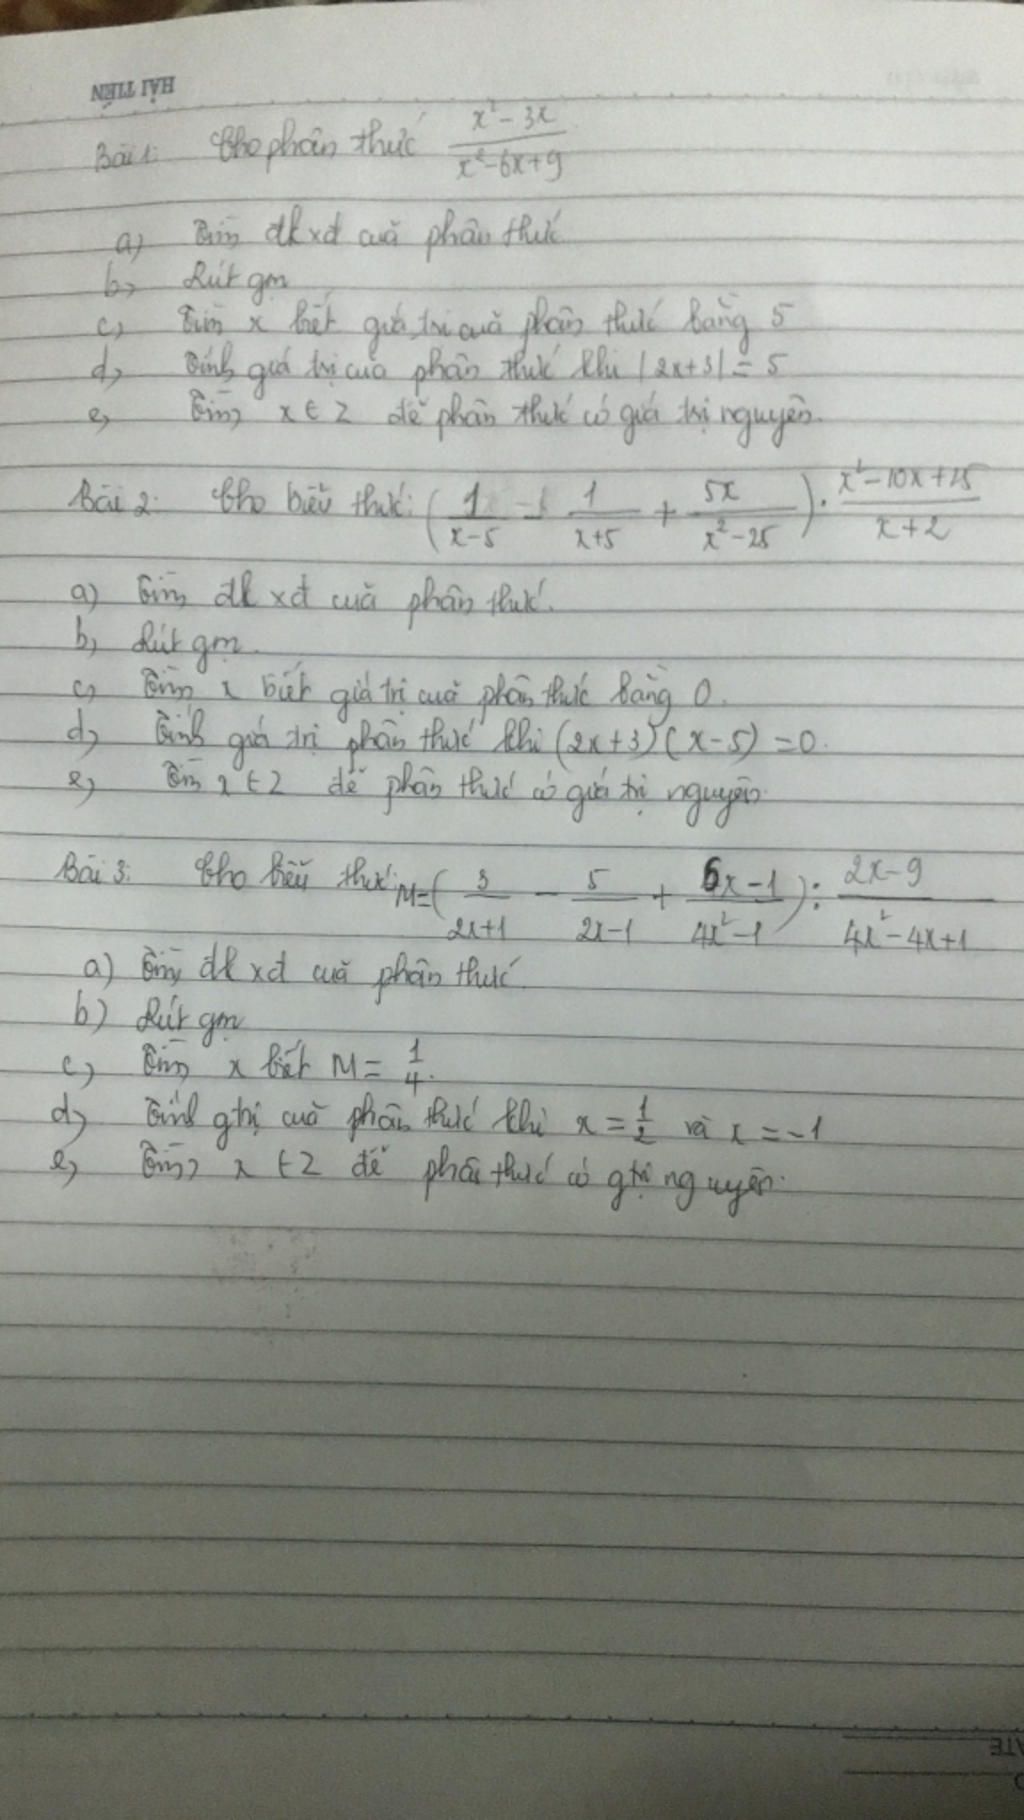 HẢI TIẾN
Bài 1: Cho phân thức x² - 3x / x² - 6x + 9
a) Tìm đkxđ cuả phân thức
b, Rút gọn
c, Tìm x biết giá trị cuả phân thức bằng 5
d, Tính giá trị của phân thức khi |2x+3| = 5
e, Tìm x ∈ Z để phân thức có giá trị nguyên.
Bài 2: Cho biểu thức: (1/x-5 - 1/x+5 + 5x/x²-25) . x²-10x+25/x+2
a) Tìm đk xđ cuả phân thức.
b, Rút gọn
c, Tìm x biết giá trị cuả phân thức bằng 0.
d, Tính giá trị phân thức khi (2x+3)(x-5) = 0.
e, Tìm x ∈ Z để phân thức có giá trị nguyên
Bài 3: Cho biểu thức: M=(3/2x+1 - 5/2x-1 + 6x-1/4x²-1) : 2x-9/4x²-4x+1
a) Tìm đk xđ cuả phân thức
b) Rút gọn
c, Tìm x biết M = 1/4.
d, Tính gtrị cuả phân thức khi x = 1/2 và x = -1
e, Tìm x ∈ Z để phân thức có gtrị nguyên.